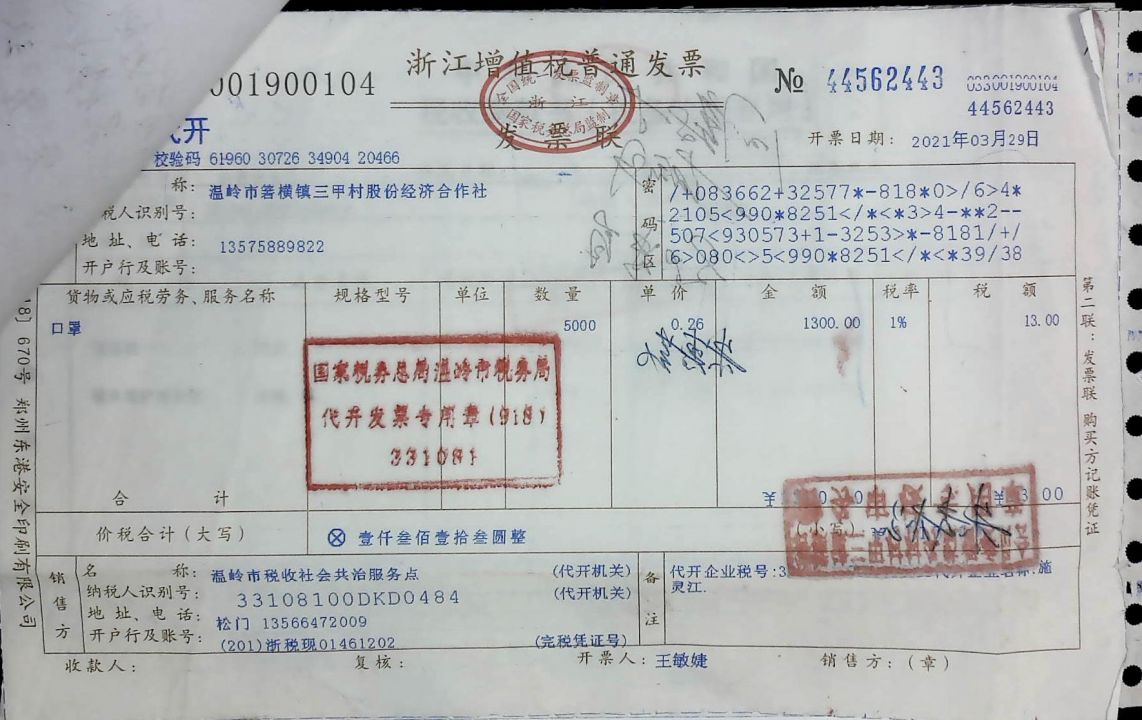 浙江增值税普通发票
001900104
全国统一发票监制章
浙江
国家税务总局监制
发票联
№ 44562443
033001900104
44562443
代开
校验码 61960 30726 34904 20466
开票日期: 2021年03月29日
称: 温岭市箬横镇三甲村股份经济合作社
税人识别号:
地址、电话: 13575889822
开户行及账号:
密码区
/+083662+32577*-818*0>/6>4*
2105<990*8251</*<*3>4-**2--
507<930573+1-3253>*-8181/+/
6>080<>5<990*8251</*<*39/38
货物或应税劳务、服务名称 规格型号 单位 数量 单价 金额 税率 税额
口罩 5000 0.26 1300.00 1% 13.00
国家税务总局温岭市税务局
代开发票专用章(918)
331081
合计
价税合计(大写) ⊗ 壹仟叁佰壹拾叁圆整 (小写)
销售方
名称: 温岭市税收社会共治服务点 (代开机关)
纳税人识别号: 33108100DKD0484 (代开机关)
地址、电话: 松门 13566472009
开户行及账号: (201)浙税现01461202 (完税凭证号)
备注
代开企业税号:3 代开企业名称:施
灵江.
收款人: 复核: 开票人: 王敏婕 销售方:(章)
第二联:发票联 购买方记账凭证
18] 670号 郑州东港安全印刷有限公司